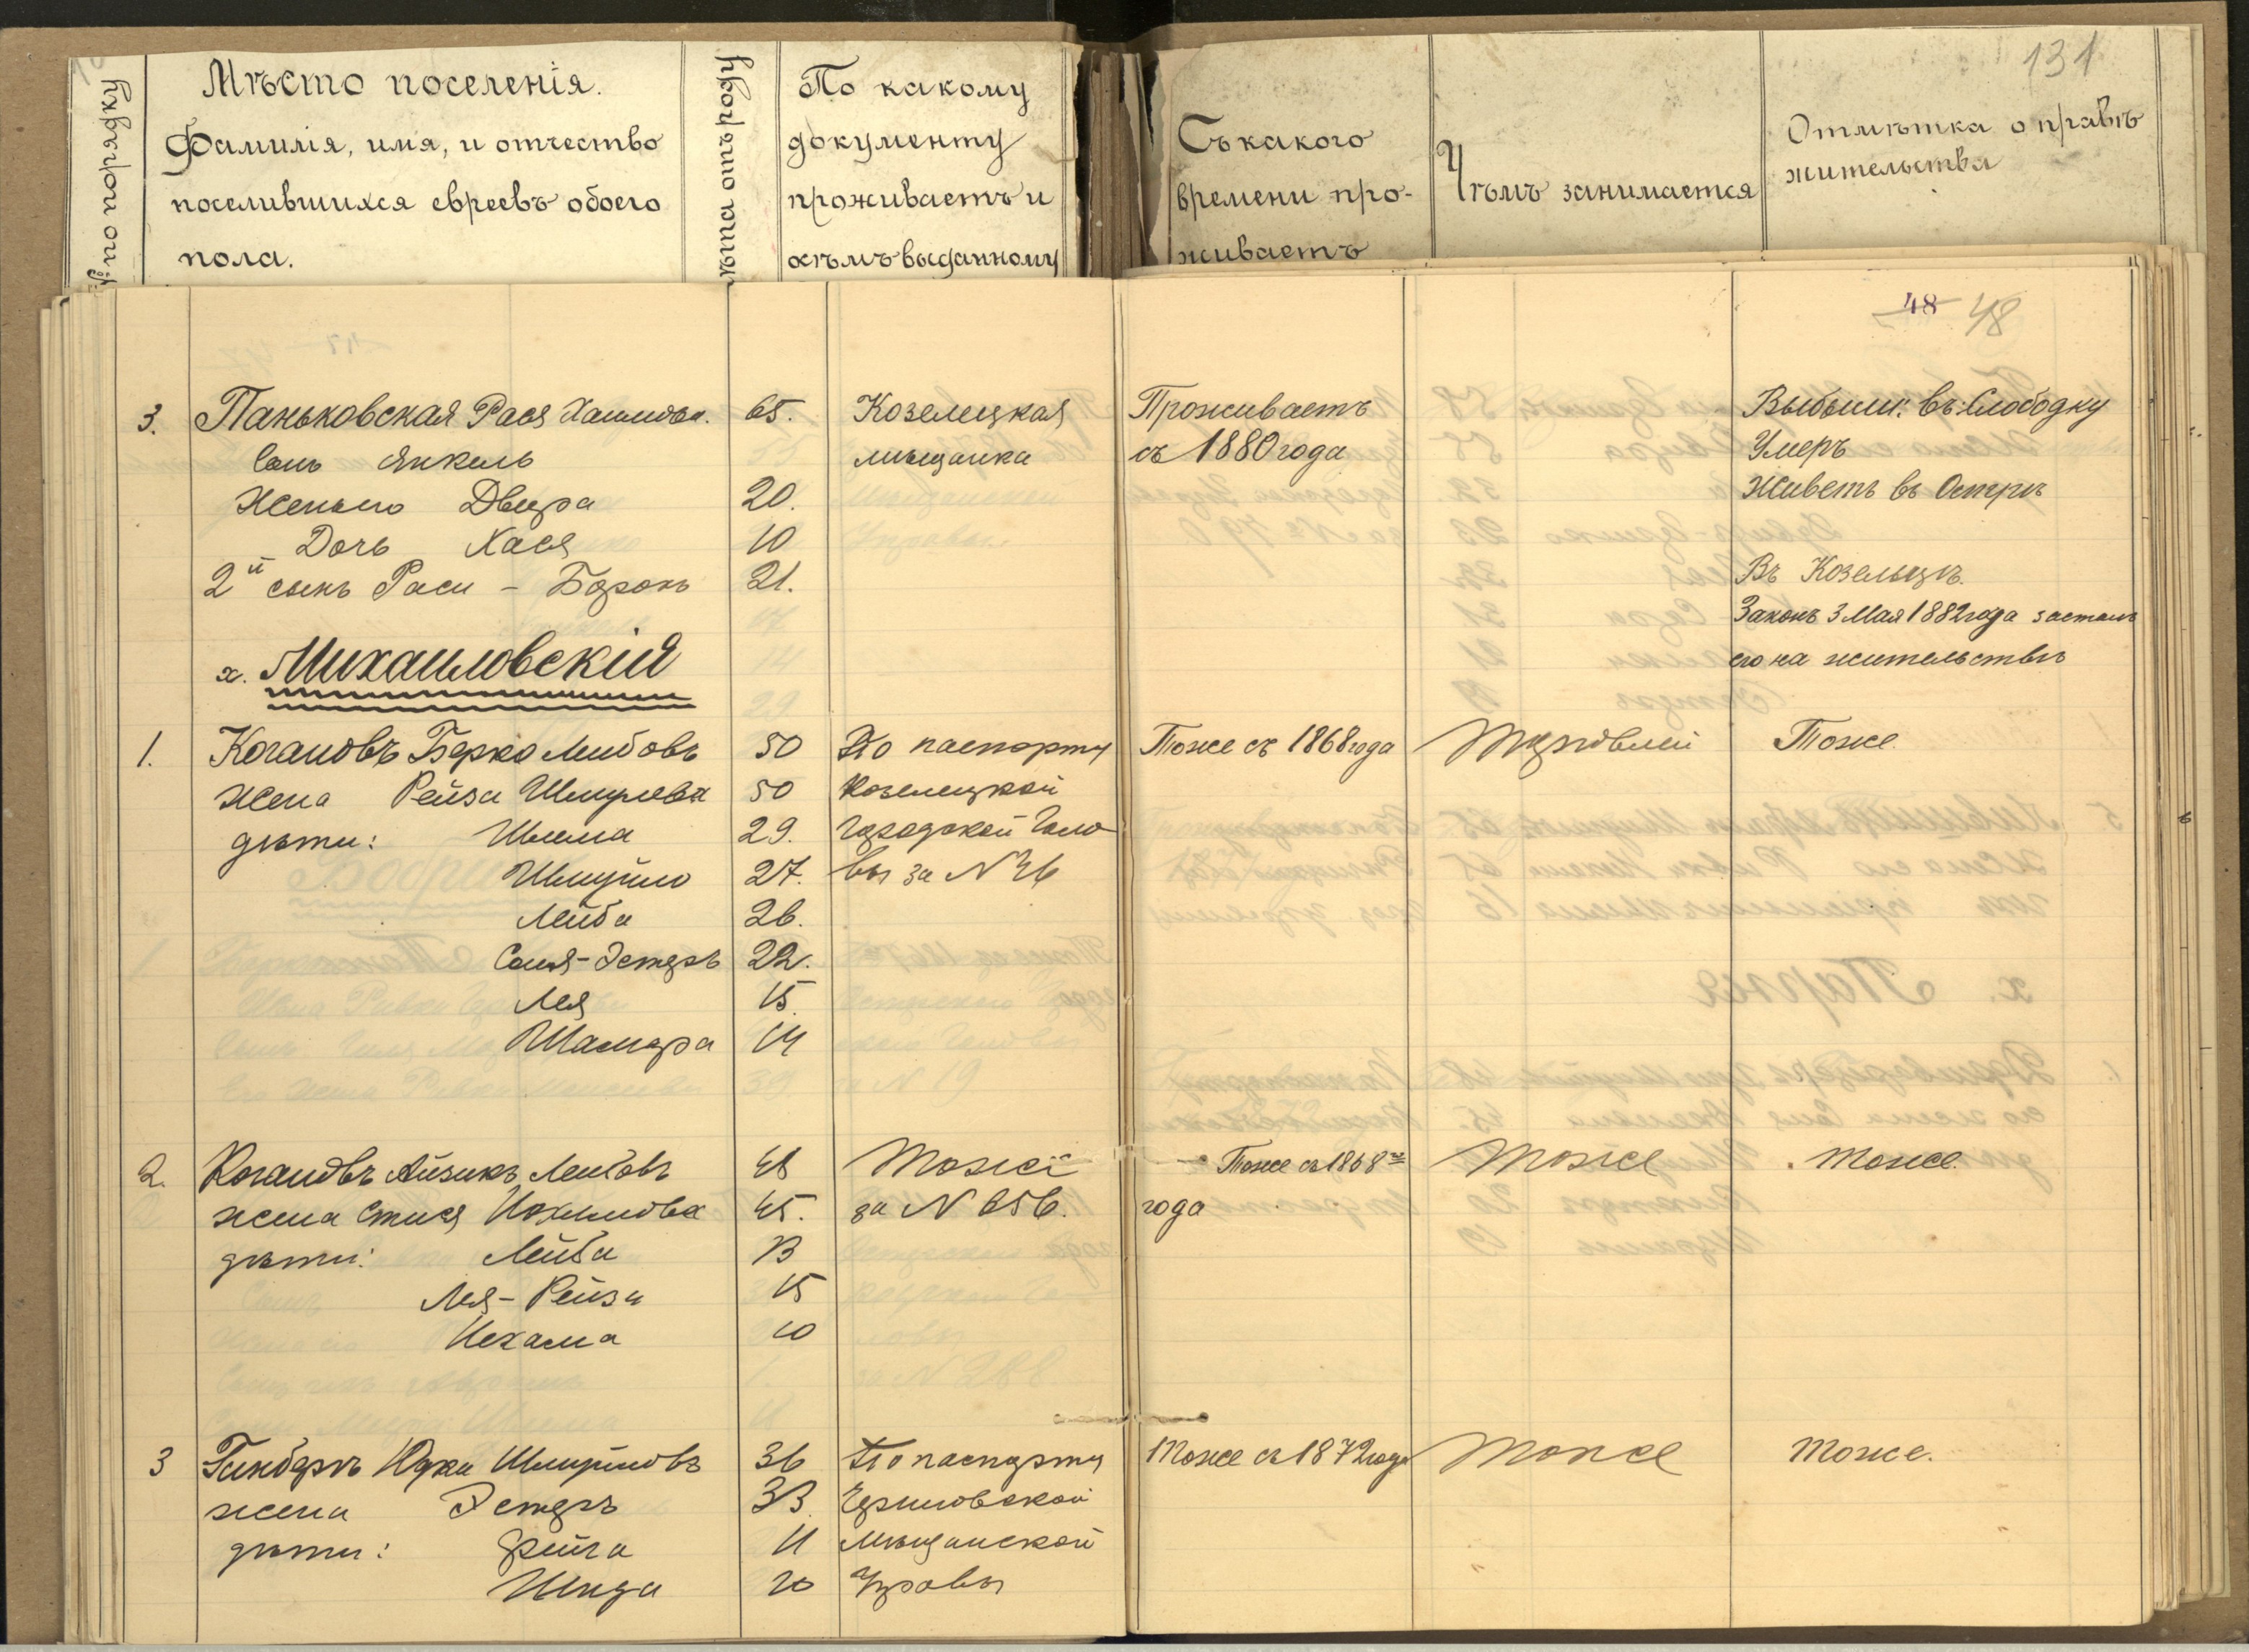 131
№ по порядку
Мѣсто поселенія.
Фамилія, имя, и отчество
поселившихся евреевъ обоего
пола.
лѣта отъ роду
По какому
документу
проживаетъ и
кѣмъ выданному
Съ какого
времени про-
живаетъ
Чѣмъ занимается
Отмѣтка о правѣ
жительства
48 48
3. Паньковская Рася Хаимова. 65. Козелецкая Проживаетъ Выбыли: въ Слободку
Сынъ Янкель мѣщанка съ 1880 года Умеръ
Жена его Двера 20. Живетъ въ Острѣ
Дочь Хася 10
2й сынъ Раси - Берокъ 21. Въ Козельцѣ.
Законъ 3 Мая 1882 года засталъ
его на жительствѣ
х. Михаиловскія
1. Когановъ Берко Лейбовъ 50 По паспорту Тоже съ 1868 года Торговлей Тоже.
жена Рейза Шмулева 50 Козелецкой
дѣти: Шлема 29. Городской Голо
Шмуйло 27. вы за N 36
Лейба 26.
Соня-Эстеръ 22.
Лея 15.
Шамера 14
2. Когановъ Айзикъ Лейбовъ 48 Тоже Тоже съ 1868 Тоже Тоже.
жена Стися 45. за N 656. года
дѣти: Лейба 13
Лея-Рейза 15
Нехама 10
3 Гинберъ Юдка Шмуйловъ 36 По паспорту Тоже съ 1872 года Тоже Тоже.
жена Эстеръ 33. Черниговской
дѣти: Фейга 11 Мѣщанской
10 Управы